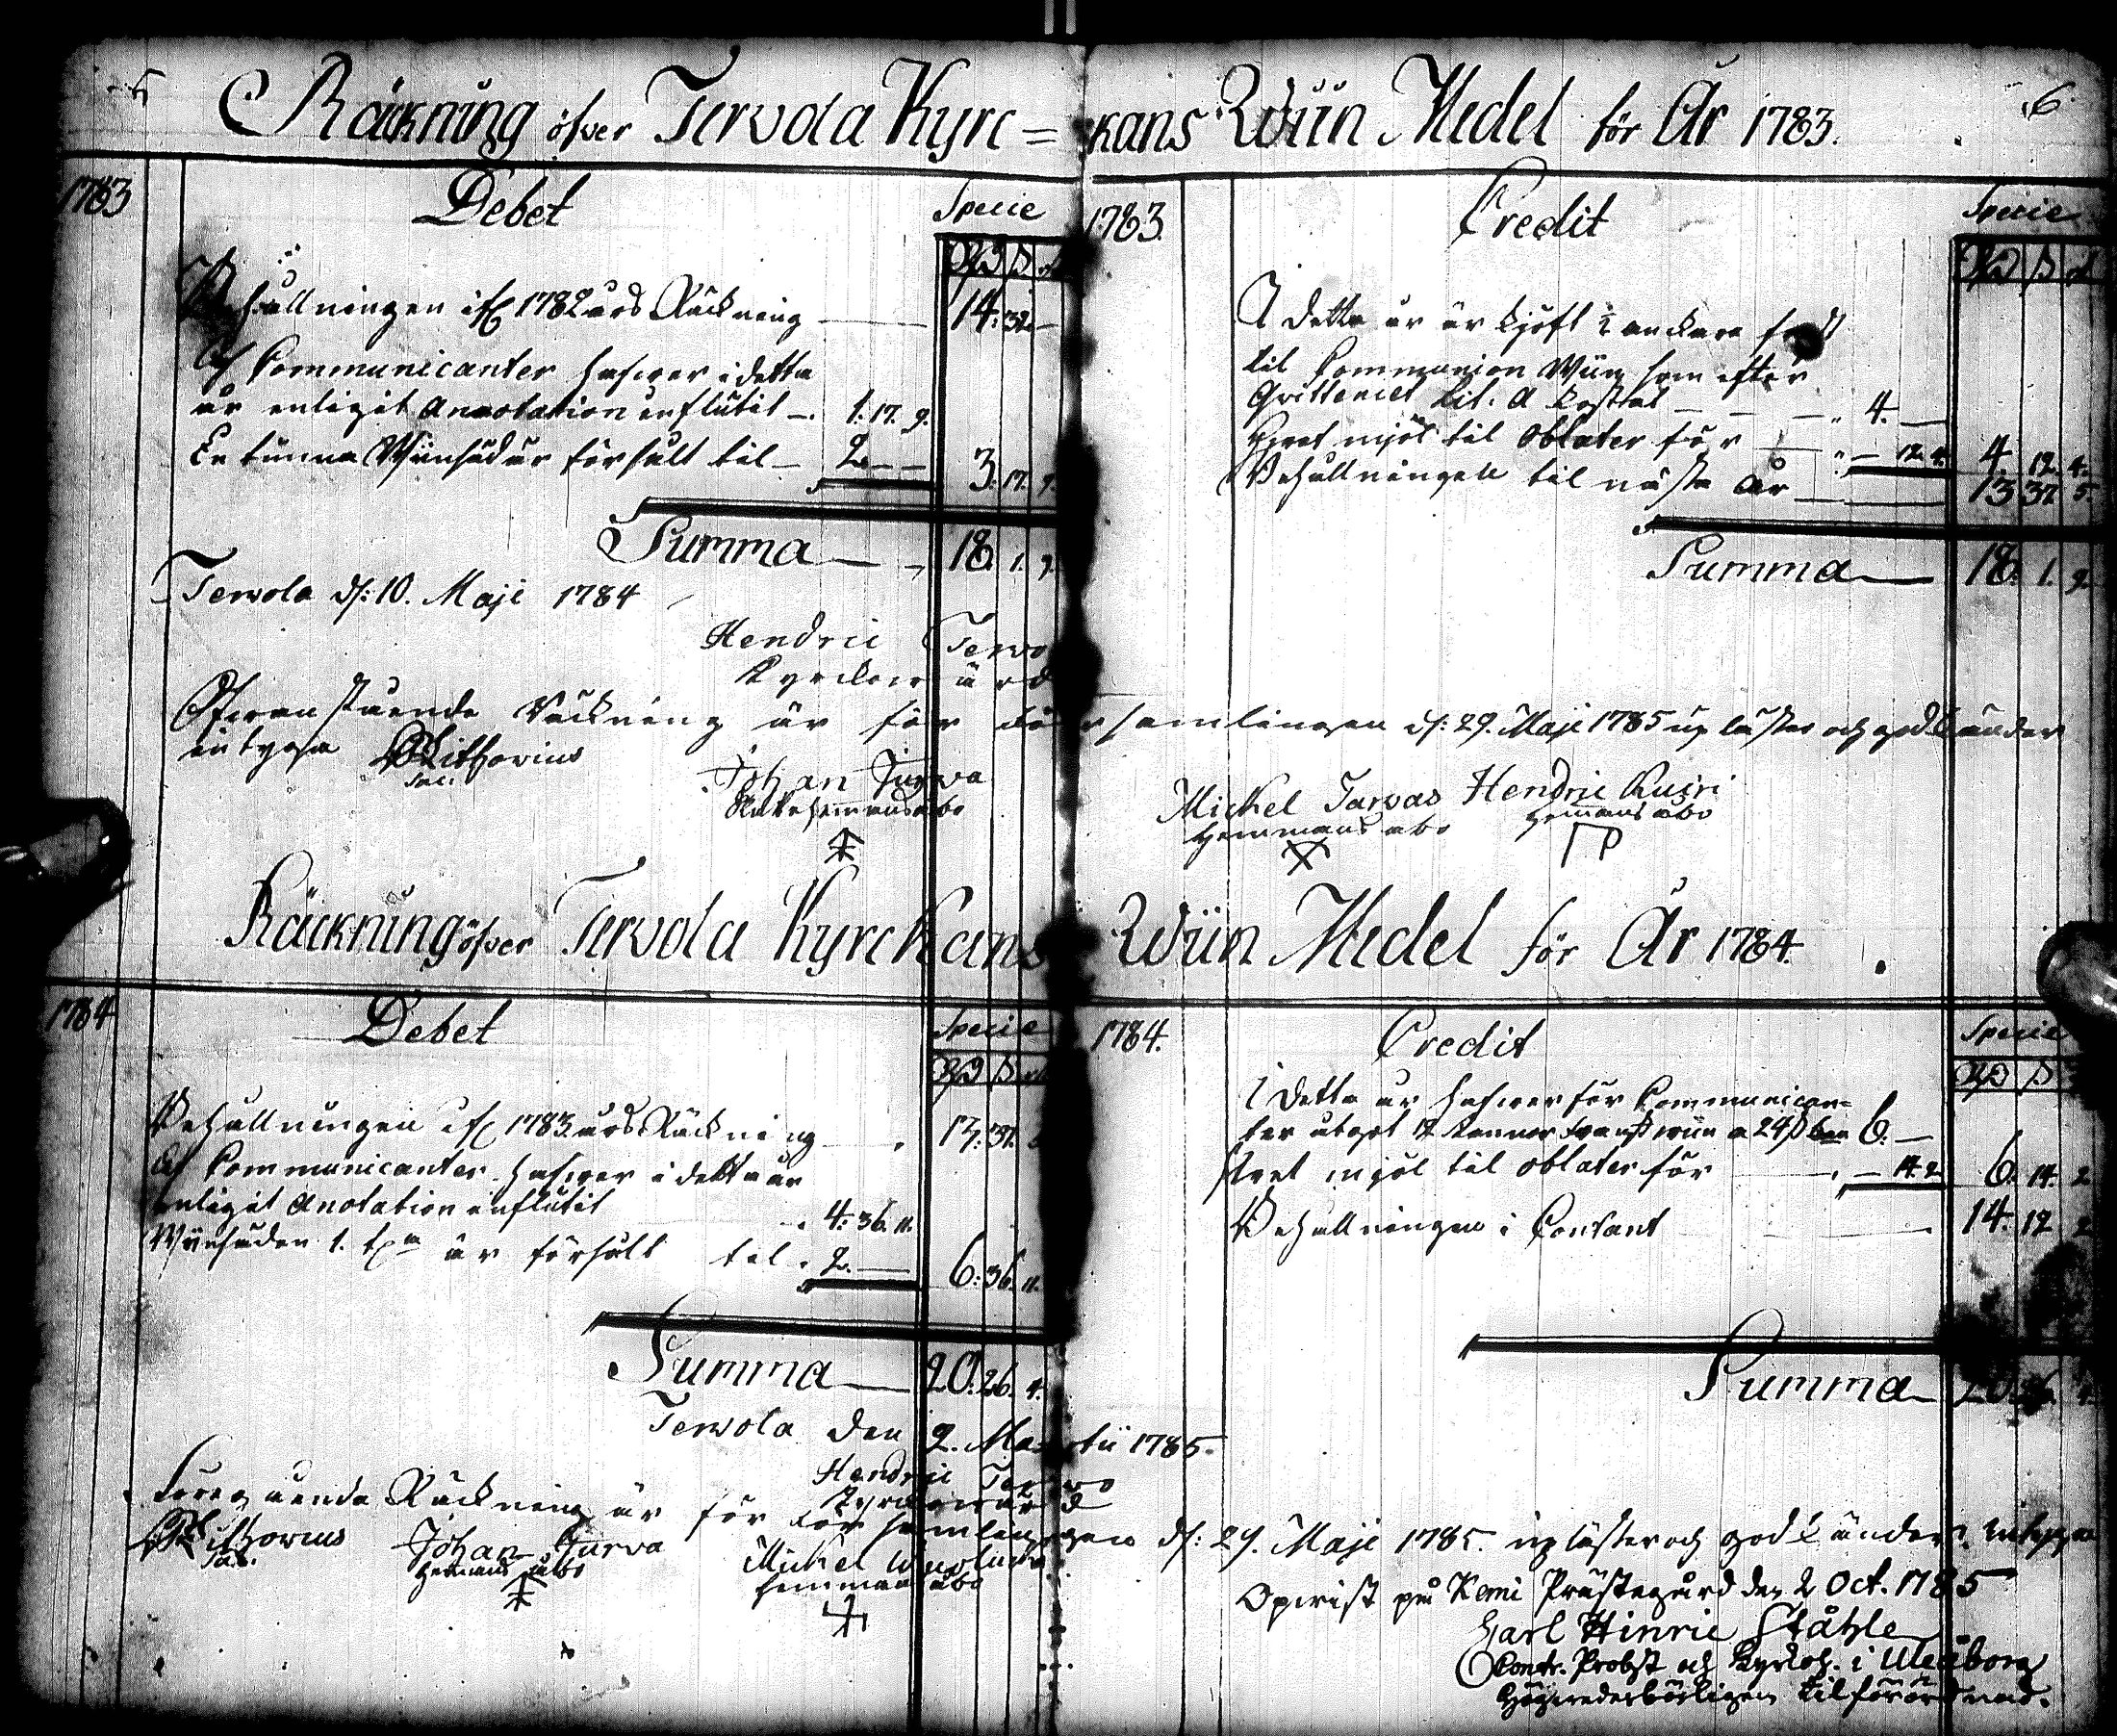 5
Räckning öfver Tervola Kyrc=kans Wiin Medel för År 1783.
6.
1783
Debet
Specie
Rd ß
Behållningen ifr 1782 års Räckning — 14: 32. —
Af Communicanter hafwer i detta
år enligit Annotation influtit —. 1. 17. 9.
En tunna Wiinsäd är försålt til — 2. — — 3. 17. 9.
Summa — 18. 1. 9.
Terwola d: 10. Maji 1784
Hendric Terwo
Kyrckowärd
1783.
Credit
Specie
Rd ß
I detta år är kjöft ½ anckare
til Communion Wiin som efter
Qvittencet Lit. A kostat — — — 4. —
Hvet mjöl til Oblater för — 12. 4. 4. 12. 4.
Behållningen til nästa År — 13. 37. 5.
Summa — 18. 1. 9.
Ofvanstående Räckning är för Församlingen d: 29. Maji 1785 upläsen och godkänder
intyga
Lithovius
Sac:
Johan Jurva
hemmans åbo
Michel Tarvas
Hemmans åbo
Hendric Kuiri
Hemans åbo
Räckning öfver Tervola Kyrckans Wiin Medel för År 1784.
1784
Debet
Specie
Rd ß
Behållningen ifr 1783 års Räckning — 13: 37. 5
Af Communicanter hafwer i detta år
enligit Anotation influtit — 4: 36. 11.
Wiinsäden 1. t:a är försålt til. 2. — 6: 36. 11.
Summa — 20. 26. 4.
Terwola den 2. Martii 1785.
Hendric Terwo
Kyrckowärd
1784.
Credit
Specie
Rd ß
I detta år hafwer för Communican=
ter utgot 12 kannor Franst wiin a 24 ß 6. —
Hvet mjöl til oblater för — 14. 2. 6. 14. 2
Behållningen i Contant — 14. 12. 2
Summa — 20. 26. 4
Föregående Räckning är för Församlingen d: 29. Maji 1785. upläsen och godkänder. intyga
Lithovius
Sac.
Johan Jurva
Hemans åbo
Michel
hemmans åbo
Opwist på Kemi Prästegård den 2 Oct. 1785
Carl Hinric Ståhle
Contr. Probst och Kyrkoh. i Uleåborg
Högwederbörligen tilförordnad.